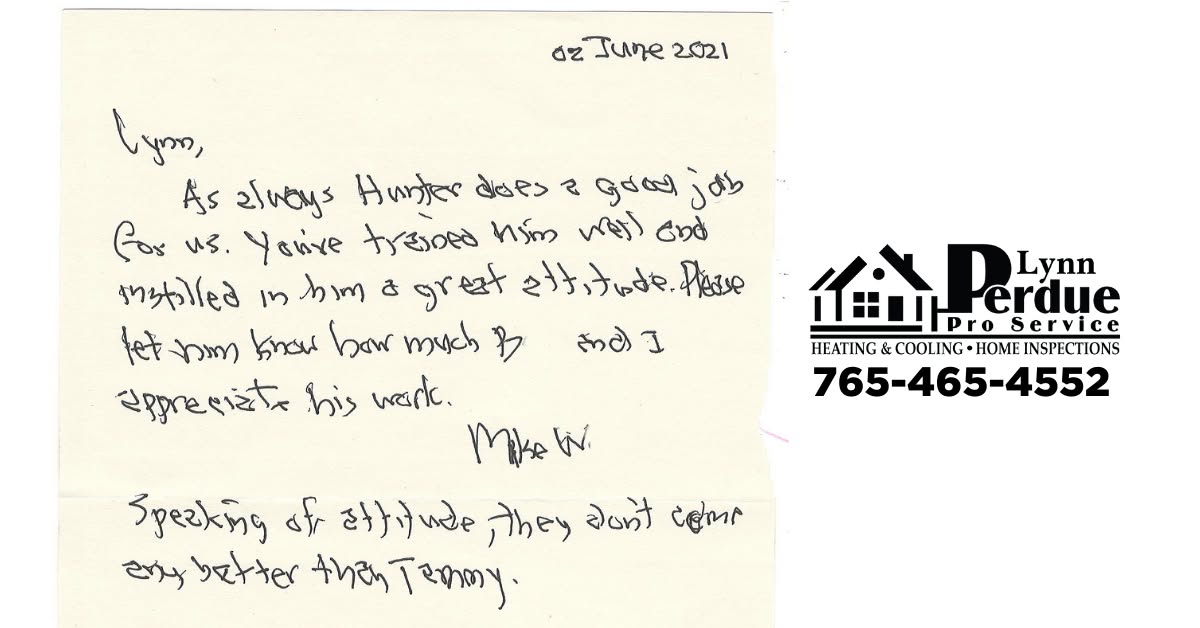 02 June 2021
Lynn,
As always Hunter does a good job
for us. You've trained him well and
instilled in him a great attitude. Please
let him know how much B and I
appreciate his work.
Mike W.
Speaking of attitude, they don't come
any better than Tammy.
Lynn
Perdue
Pro Service
HEATING & COOLING • HOME INSPECTIONS
765-465-4552